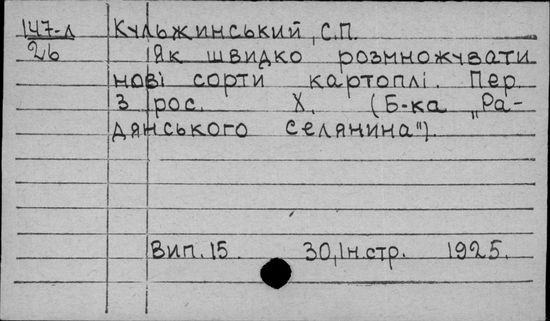 147-л Кульжинський, С.П.
26 Як швидко розмножувати
нові сорти картоплі. Пер.
З рос. Х. (Б-ка „Ра-
дянського селянина").
Вип. 15. 30,1н.стр. 1925.